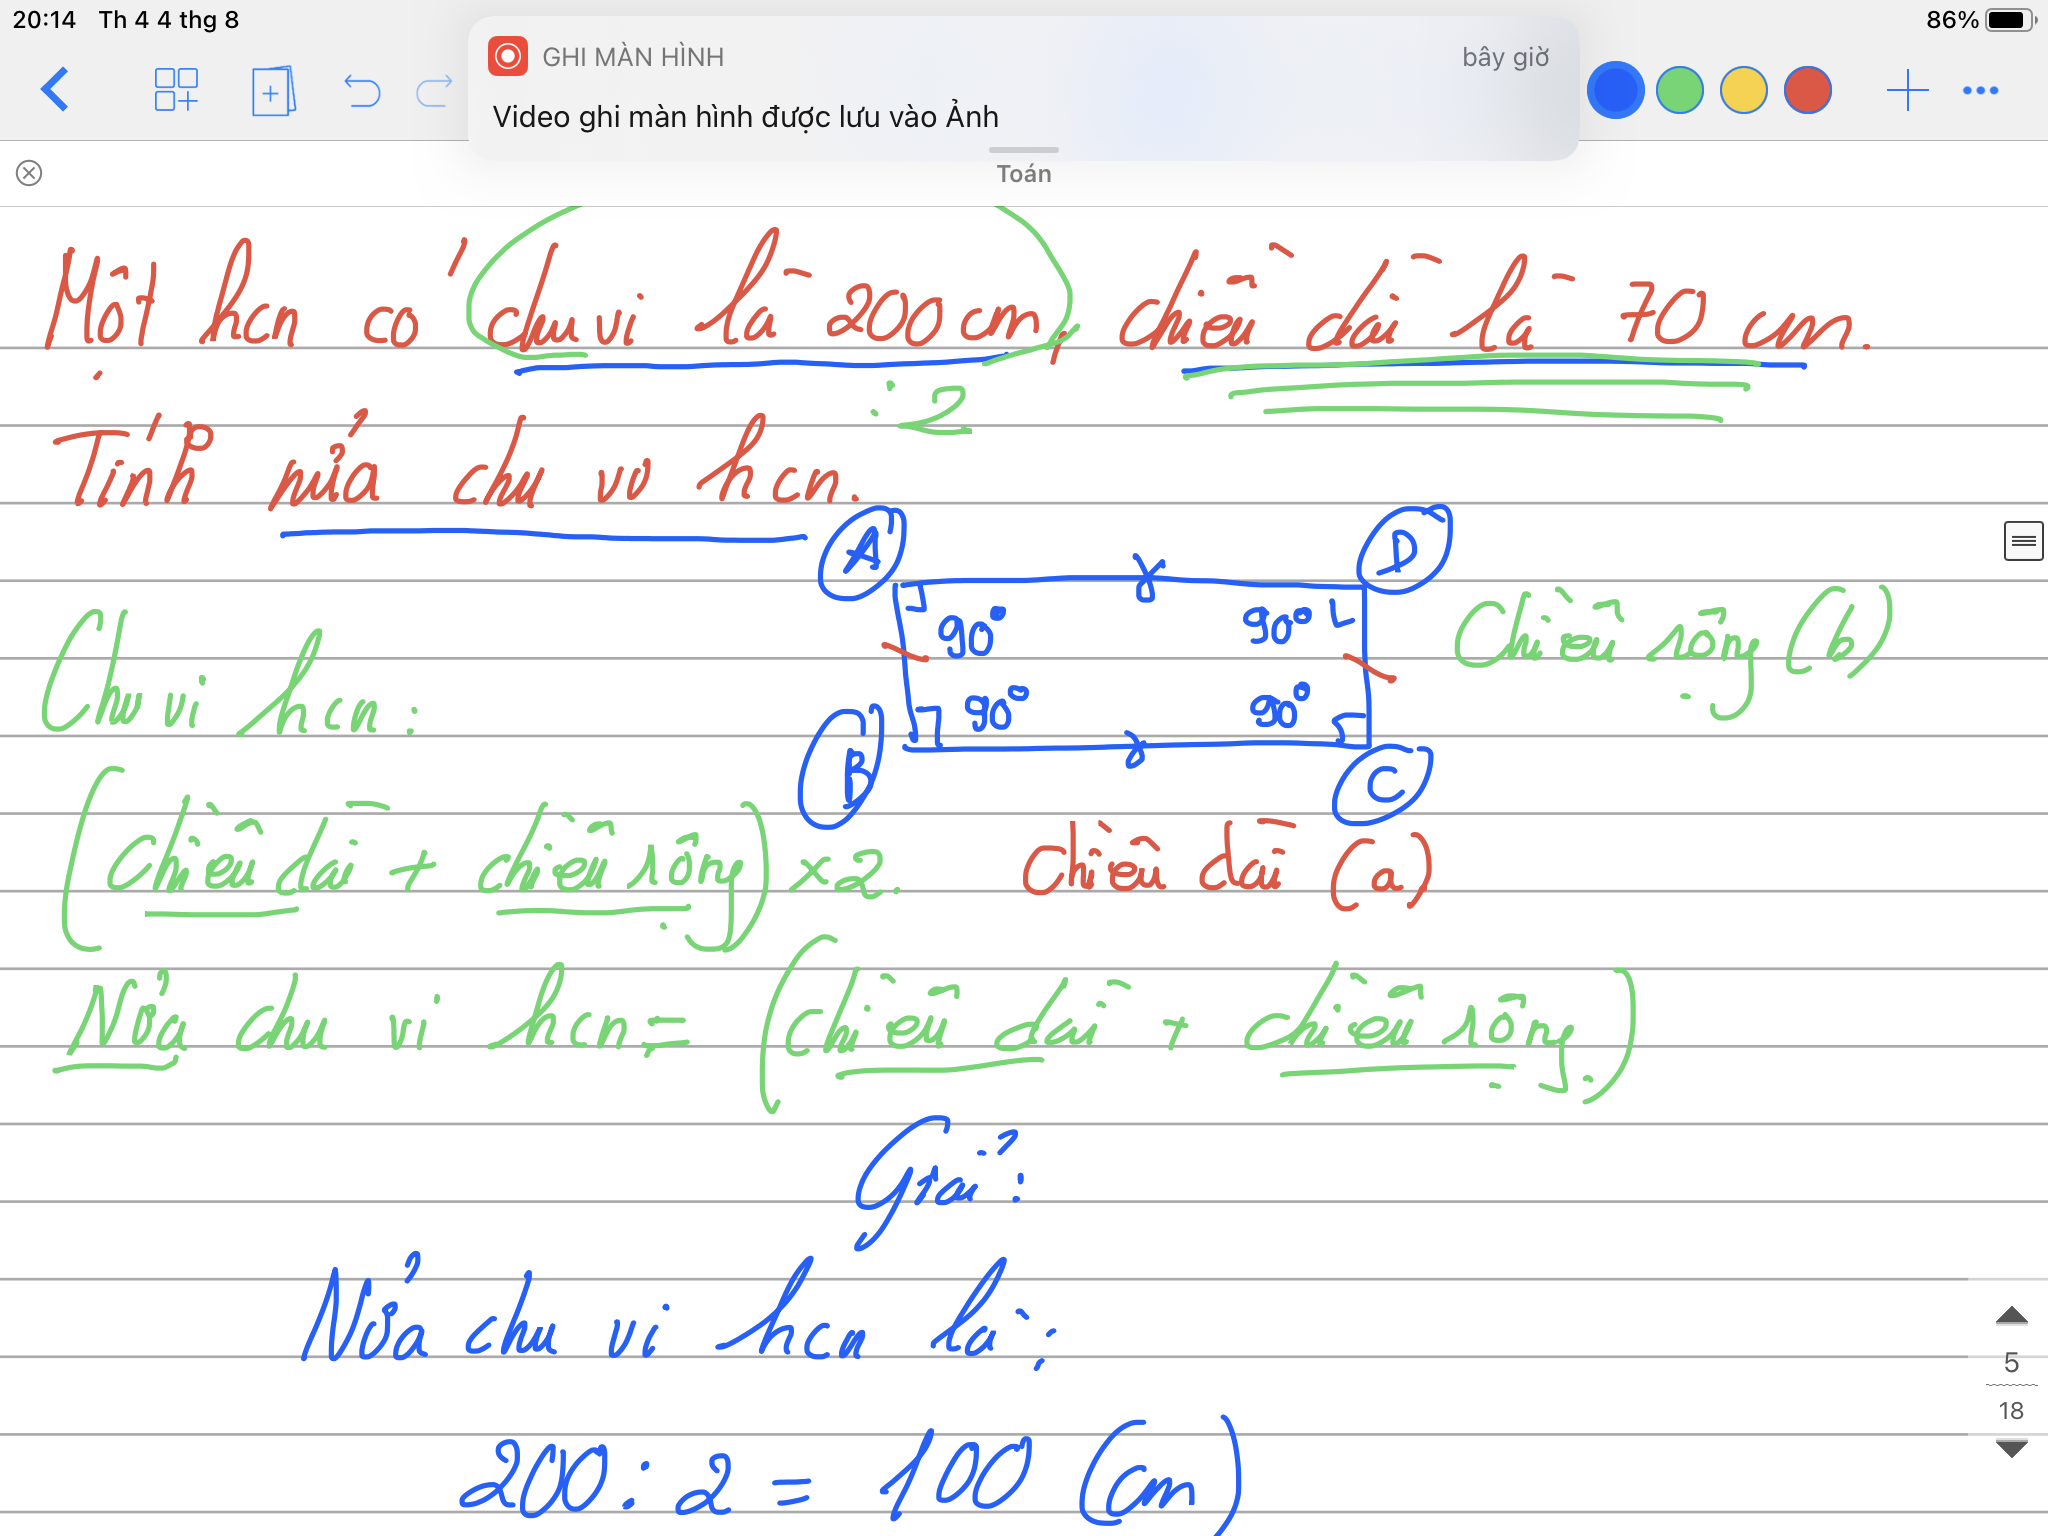 20:14 Th 4 4 thg 8
86%
GHI MÀN HÌNH
bây giờ
Video ghi màn hình được lưu vào Ảnh
Toán
Một hcn có chu vi là 200 cm, chiều dài là 70 cm.
: 2
Tính nửa chu vi hcn.
A
D
90° 90°
Chiều rộng (b)
Chu vi hcn:
90° 90°
B
C
(Chiều dài + chiều rộng) × 2.
Chiều dài (a)
Nửa chu vi hcn = (Chiều dài + chiều rộng)
Giải:
Nửa chu vi hcn là:
5
18
200 : 2 = 100 (cm)